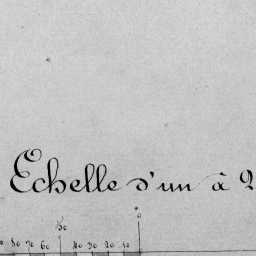 Echelle d'un à 2
50
80 70 60 40 30 20 10 0